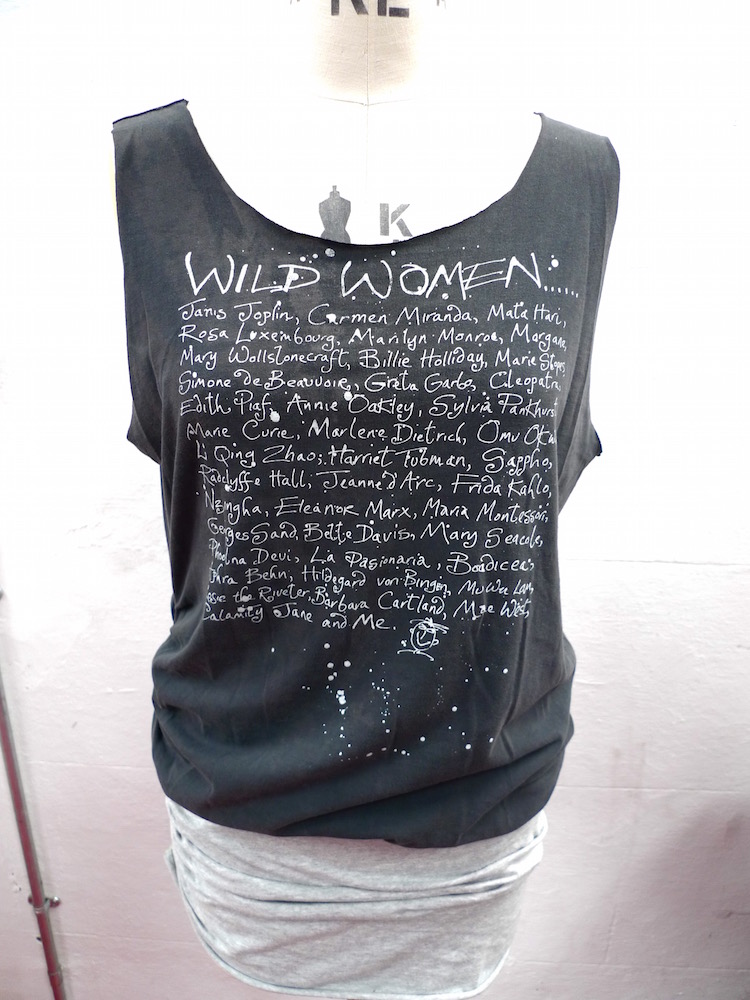 K
WILD WOMEN......
Janis Joplin, Carmen Miranda, Mata Hari,
Rosa Luxembourg, Marilyn Monroe, Morgana
Mary Wollstonecraft, Billie Holliday, Marie Stopes
Simone de Beauvoir, Greta Garbo, Cleopatra,
Edith Piaf, Annie Oakley, Sylvia Pankhurst
Marie Curie, Marlene Dietrich, Omu
Li Qing Zhao, Harriet Tubman, Sappho,
Radclyffe Hall, Jeanne d'Arc, Frida Kahlo,
Nzingha, Eleanor Marx, Maria Montessori,
Georges Sand, Bette Davis, Mary Seacole,
Devi, La Pasionaria, Boadicea,
Behn, Hildegard von Bingen,
the Riveter, Barbara Cartland, Mae West,
Calamity Jane and Me.